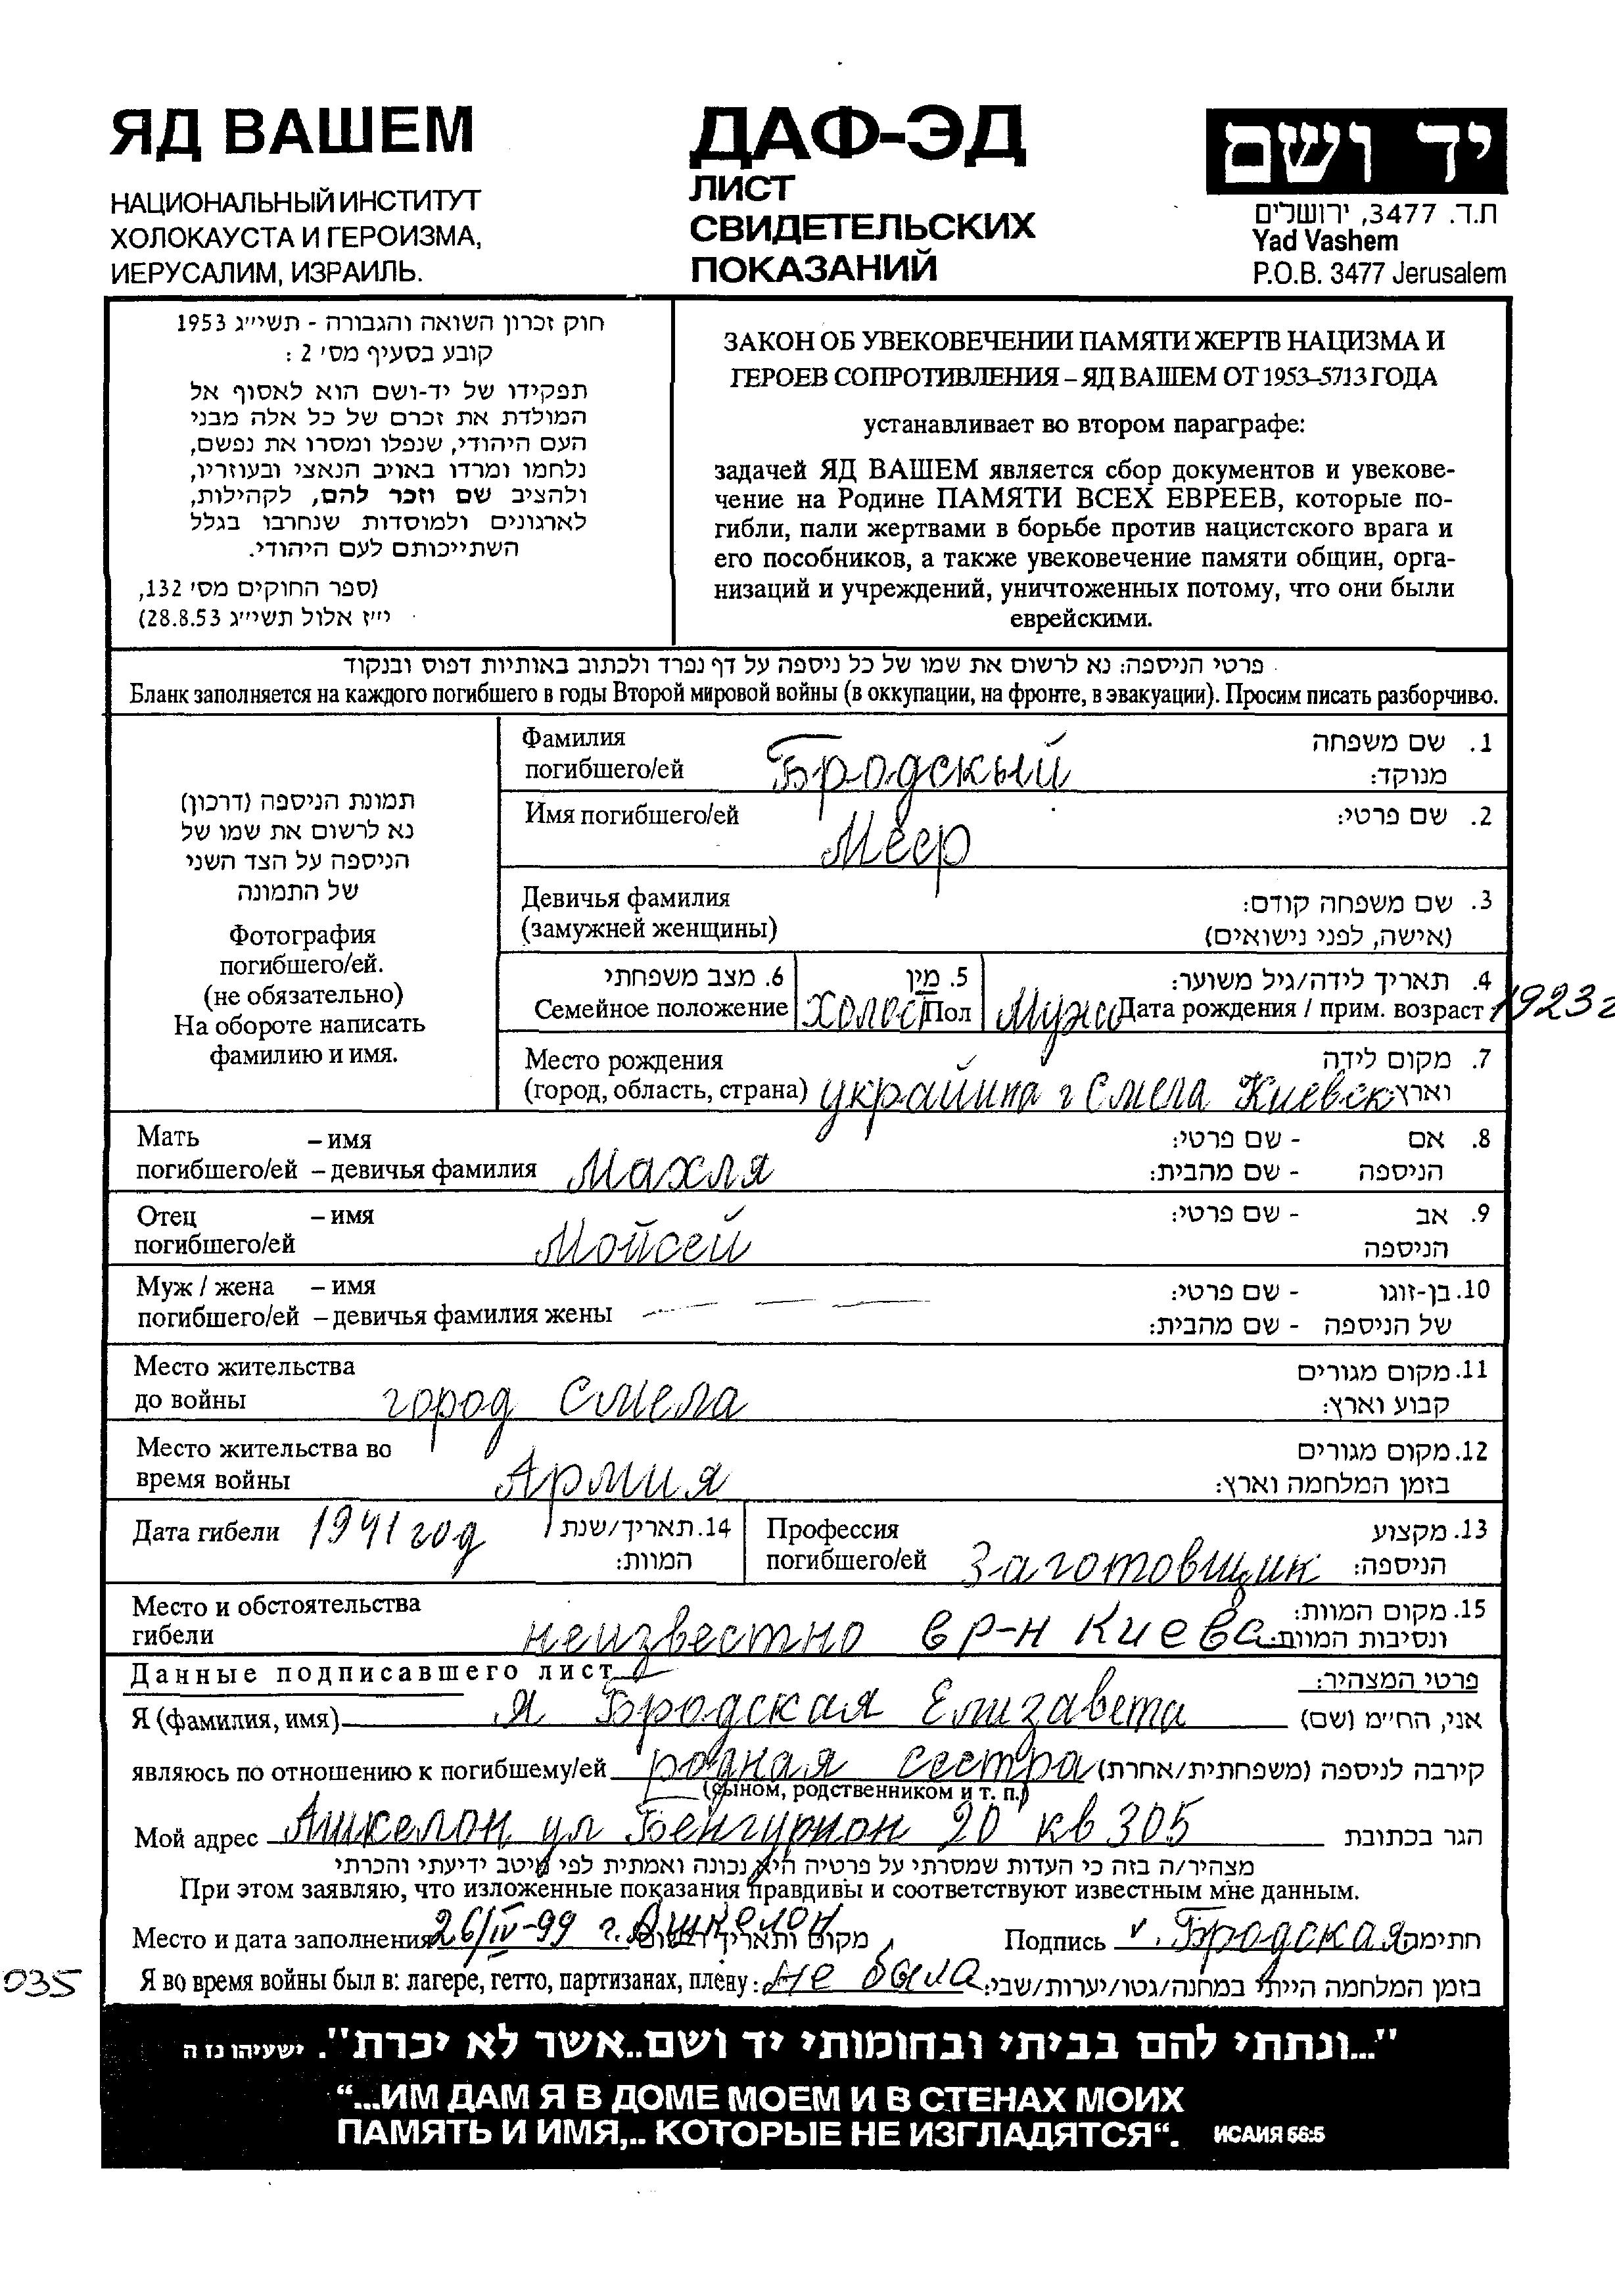 ЯД ВАШЕМ
НАЦИОНАЛЬНЫЙ ИНСТИТУТ
ХОЛОКАУСТА И ГЕРОИЗМА,
ИЕРУСАЛИМ, ИЗРАИЛЬ.
ДАФ-ЭД
ЛИСТ
СВИДЕТЕЛЬСКИХ
ПОКАЗАНИЙ
יד ושם
ת.ד. 3477, ירושלים
Yad Vashem
P.O.B. 3477 Jerusalem
חוק זכרון השואה והגבורה - תשי״ג 1953
קובע בסעיף מס׳ 2 :
תפקידו של יד-ושם הוא לאסוף אל
המולדת את זכרם של כל אלה מבני
העם היהודי, שנפלו ומסרו את נפשם,
נלחמו ומרדו באויב הנאצי ובעוזריו,
ולהציב שם וזכר להם, לקהילות,
לארגונים ולמוסדות שנחרבו בגלל
השתייכותם לעם היהודי.
(ספר החוקים מס׳ 132,
י״ז אלול תשי״ג 28.8.53)
ЗАКОН ОБ УВЕКОВЕЧЕНИИ ПАМЯТИ ЖЕРТВ НАЦИЗМА И
ГЕРОЕВ СОПРОТИВЛЕНИЯ – ЯД ВАШЕМ ОТ 1953–5713 ГОДА
устанавливает во втором параграфе:
задачей ЯД ВАШЕМ является сбор документов и увекове-
чение на Родине ПАМЯТИ ВСЕХ ЕВРЕЕВ, которые по-
гибли, пали жертвами в борьбе против нацистского врага и
его пособников, а также увековечение памяти общин, орга-
низаций и учреждений, уничтоженных потому, что они были
еврейскими.
פרטי הניספה: נא לרשום את שמו של כל ניספה על דף נפרד ולכתוב באותיות דפוס ובנקוד
Бланк заполняется на каждого погибшего в годы Второй мировой войны (в оккупации, на фронте, в эвакуации). Просим писать разборчиво.
תמונת הניספה (דרכון)
נא לרשום את שמו של
הניספה על הצד השני
של התמונה
Фотография
погибшего/ей.
(не обязательно)
На обороте написать
фамилию и имя.
Фамилия
погибшего/ей Бродскый
1. שם משפחה
מנוקד:
Имя погибшего/ей Меер 2. שם פרטי:
Девичья фамилия
(замужней женщины)
3. שם משפחה קודם:
(אישה, לפני נישואים)
6. מצב משפחתי
Семейное положение холост
5. מין
Пол Мужс
4. תאריך לידה/גיל משוער:
Дата рождения / прим. возраст 1923 г
Место рождения
(город, область, страна) украйина г Смела Киевск
7. מקום לידה
וארץ:
Мать – имя
погибшего/ей – девичья фамилия Махля
8. אם - שם פרטי:
הניספה - שם מהבית:
Отец – имя
погибшего/ей Мойсей
9. אב - שם פרטי:
הניספה
Муж / жена – имя
погибшего/ей – девичья фамилия жены — — —
10. בן-זוגו - שם פרטי:
של הניספה - שם מהבית:
Место жительства
до войны город Смела
11. מקום מגורים
קבוע וארץ:
Место жительства во
время войны Армия
12. מקום מגורים
בזמן המלחמה וארץ:
Дата гибели 1941 год
14. תאריך/שנת
המוות:
Профессия
погибшего/ей Заготовщик
13. מקצוע
הניספה:
Место и обстоятельства
гибели неизвестно в р-н Киева
15. מקום המוות:
ונסיבות המוות:
Данные подписавшего лист פרטי המצהיר:
Я (фамилия, имя) Я Бродская Елизавета אני, הח״מ (שם)
являюсь по отношению к погибшему/ей родная сестра קירבה לניספה (משפחתית/אחרת)
(сыном, родственником и т. п.)
Мой адрес Ашкелон ул Бенгурион 20 кв 305 הגר בכתובת
מצהיר/ה בזה כי העדות שמסרתי על פרטיה היא נכונה ואמתית לפי מיטב ידיעתי והכרתי
При этом заявляю, что изложенные показания правдивы и соответствуют известным мне данным.
Место и дата заполнения 26/IV-99 г. Ашкелон מקום ותאריך רשום Подпись v. Бродская חתימה
035 Я во время войны был в: лагере, гетто, партизанах, плену: не была בזמן המלחמה הייתי במחנה/גטו/יערות/שבי:
"...ונתתי להם בביתי ובחומותי יד ושם..אשר לא יכרת". ישעיהו נז ה
“...ИМ ДАМ Я В ДОМЕ МОЕМ И В СТЕНАХ МОИХ
ПАМЯТЬ И ИМЯ,.. КОТОРЫЕ НЕ ИЗГЛАДЯТСЯ“. ИСАИЯ 56:5